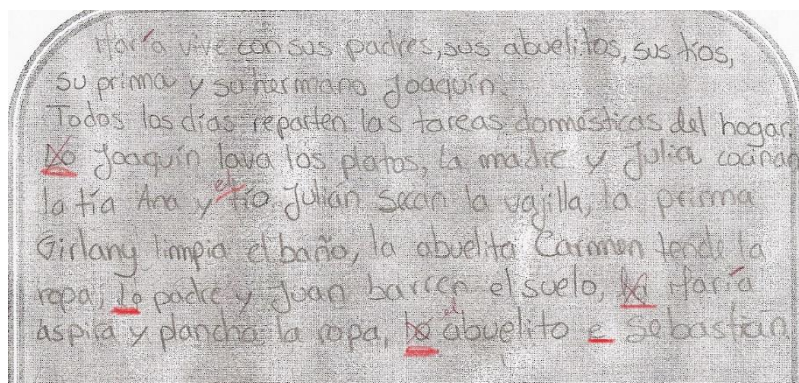 María vive con sus padres, sus abuelitos, sus tíos,
su prima y su hermano Joaquín.
Todos los días reparten las tareas domésticas del hogar.
Lo Joaquín lava los platos, la madre y Julia cocinan
la tía Ana y el tío Julián secan la vajilla, la prima
Girlany limpia el baño, la abuelita Carmen tende la
ropa, lo padre y Juan barren el suelo, la María
aspira y plancha la ropa, lo el abuelito e Sebastian.